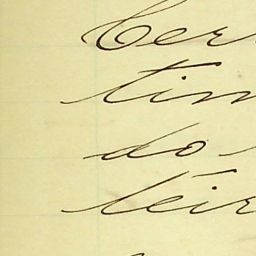 Cer
tim
do
leir